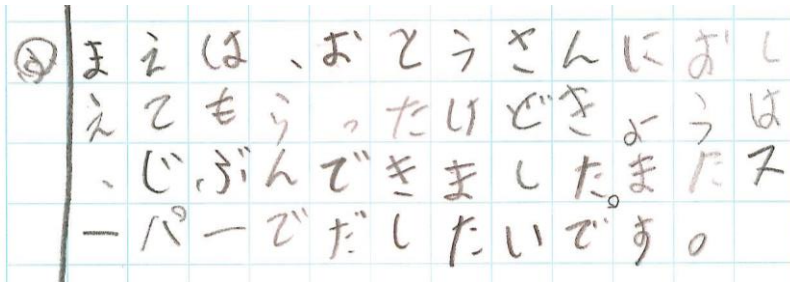 ②まえは、おとうさんにおし
えてもらったけどきょうは
、じぶんできました。またス
ーパーでだしたいです。